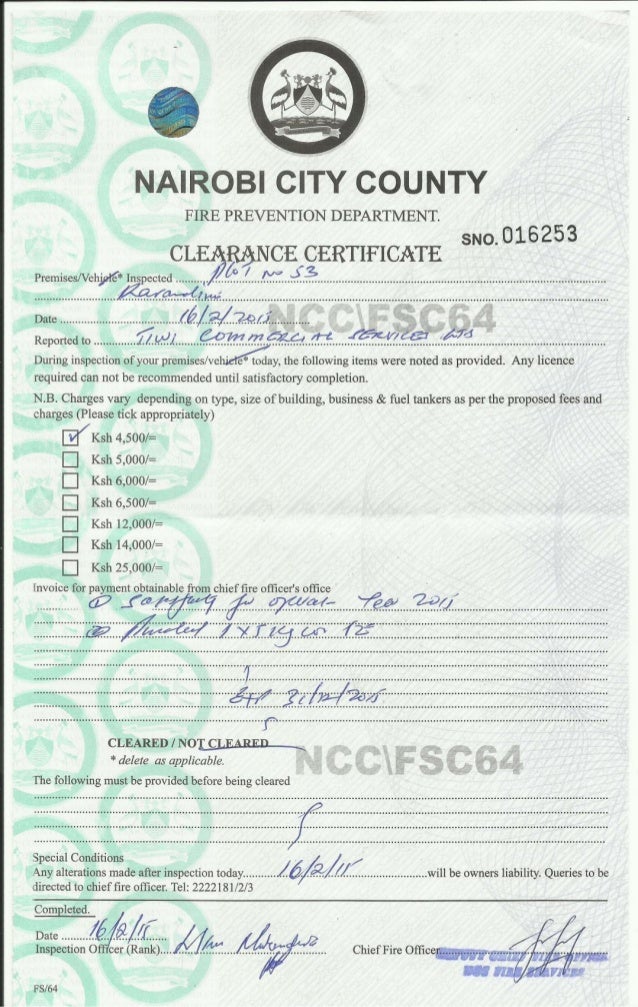 NAIROBI CITY COUNTY
FIRE PREVENTION DEPARTMENT.
SNO. 016253
CLEARANCE CERTIFICATE
Premises/Vehicle* Inspected Plot No 53
Date 16/2/2015
NCC\FSC64
Reported to TIWI COMMERCIAL SERVICES LTD
During inspection of your premises/vehicle* today, the following items were noted as provided. Any licence
required can not be recommended until satisfactory completion.
N.B. Charges vary depending on type, size of building, business & fuel tankers as per the proposed fees and
charges (Please tick appropriately)
Ksh 4,500/=
Ksh 5,000/=
Ksh 6,000/=
Ksh 6,500/=
Ksh 12,000/=
Ksh 14,000/=
Ksh 25,000/=
Invoice for payment obtainable from chief fire officer's office
① 2015
② 1x5 Kg
Exp 31/12/2015
CLEARED / NOT CLEARED
* delete as applicable.
NCC\FSC64
The following must be provided before being cleared
Special Conditions
Any alterations made after inspection today 16/2/15 will be owners liability. Queries to be
directed to chief fire officer. Tel: 2222181/2/3
Completed.
Date 16/2/15
Inspection Officer (Rank) Chief Fire Officer
FS/64